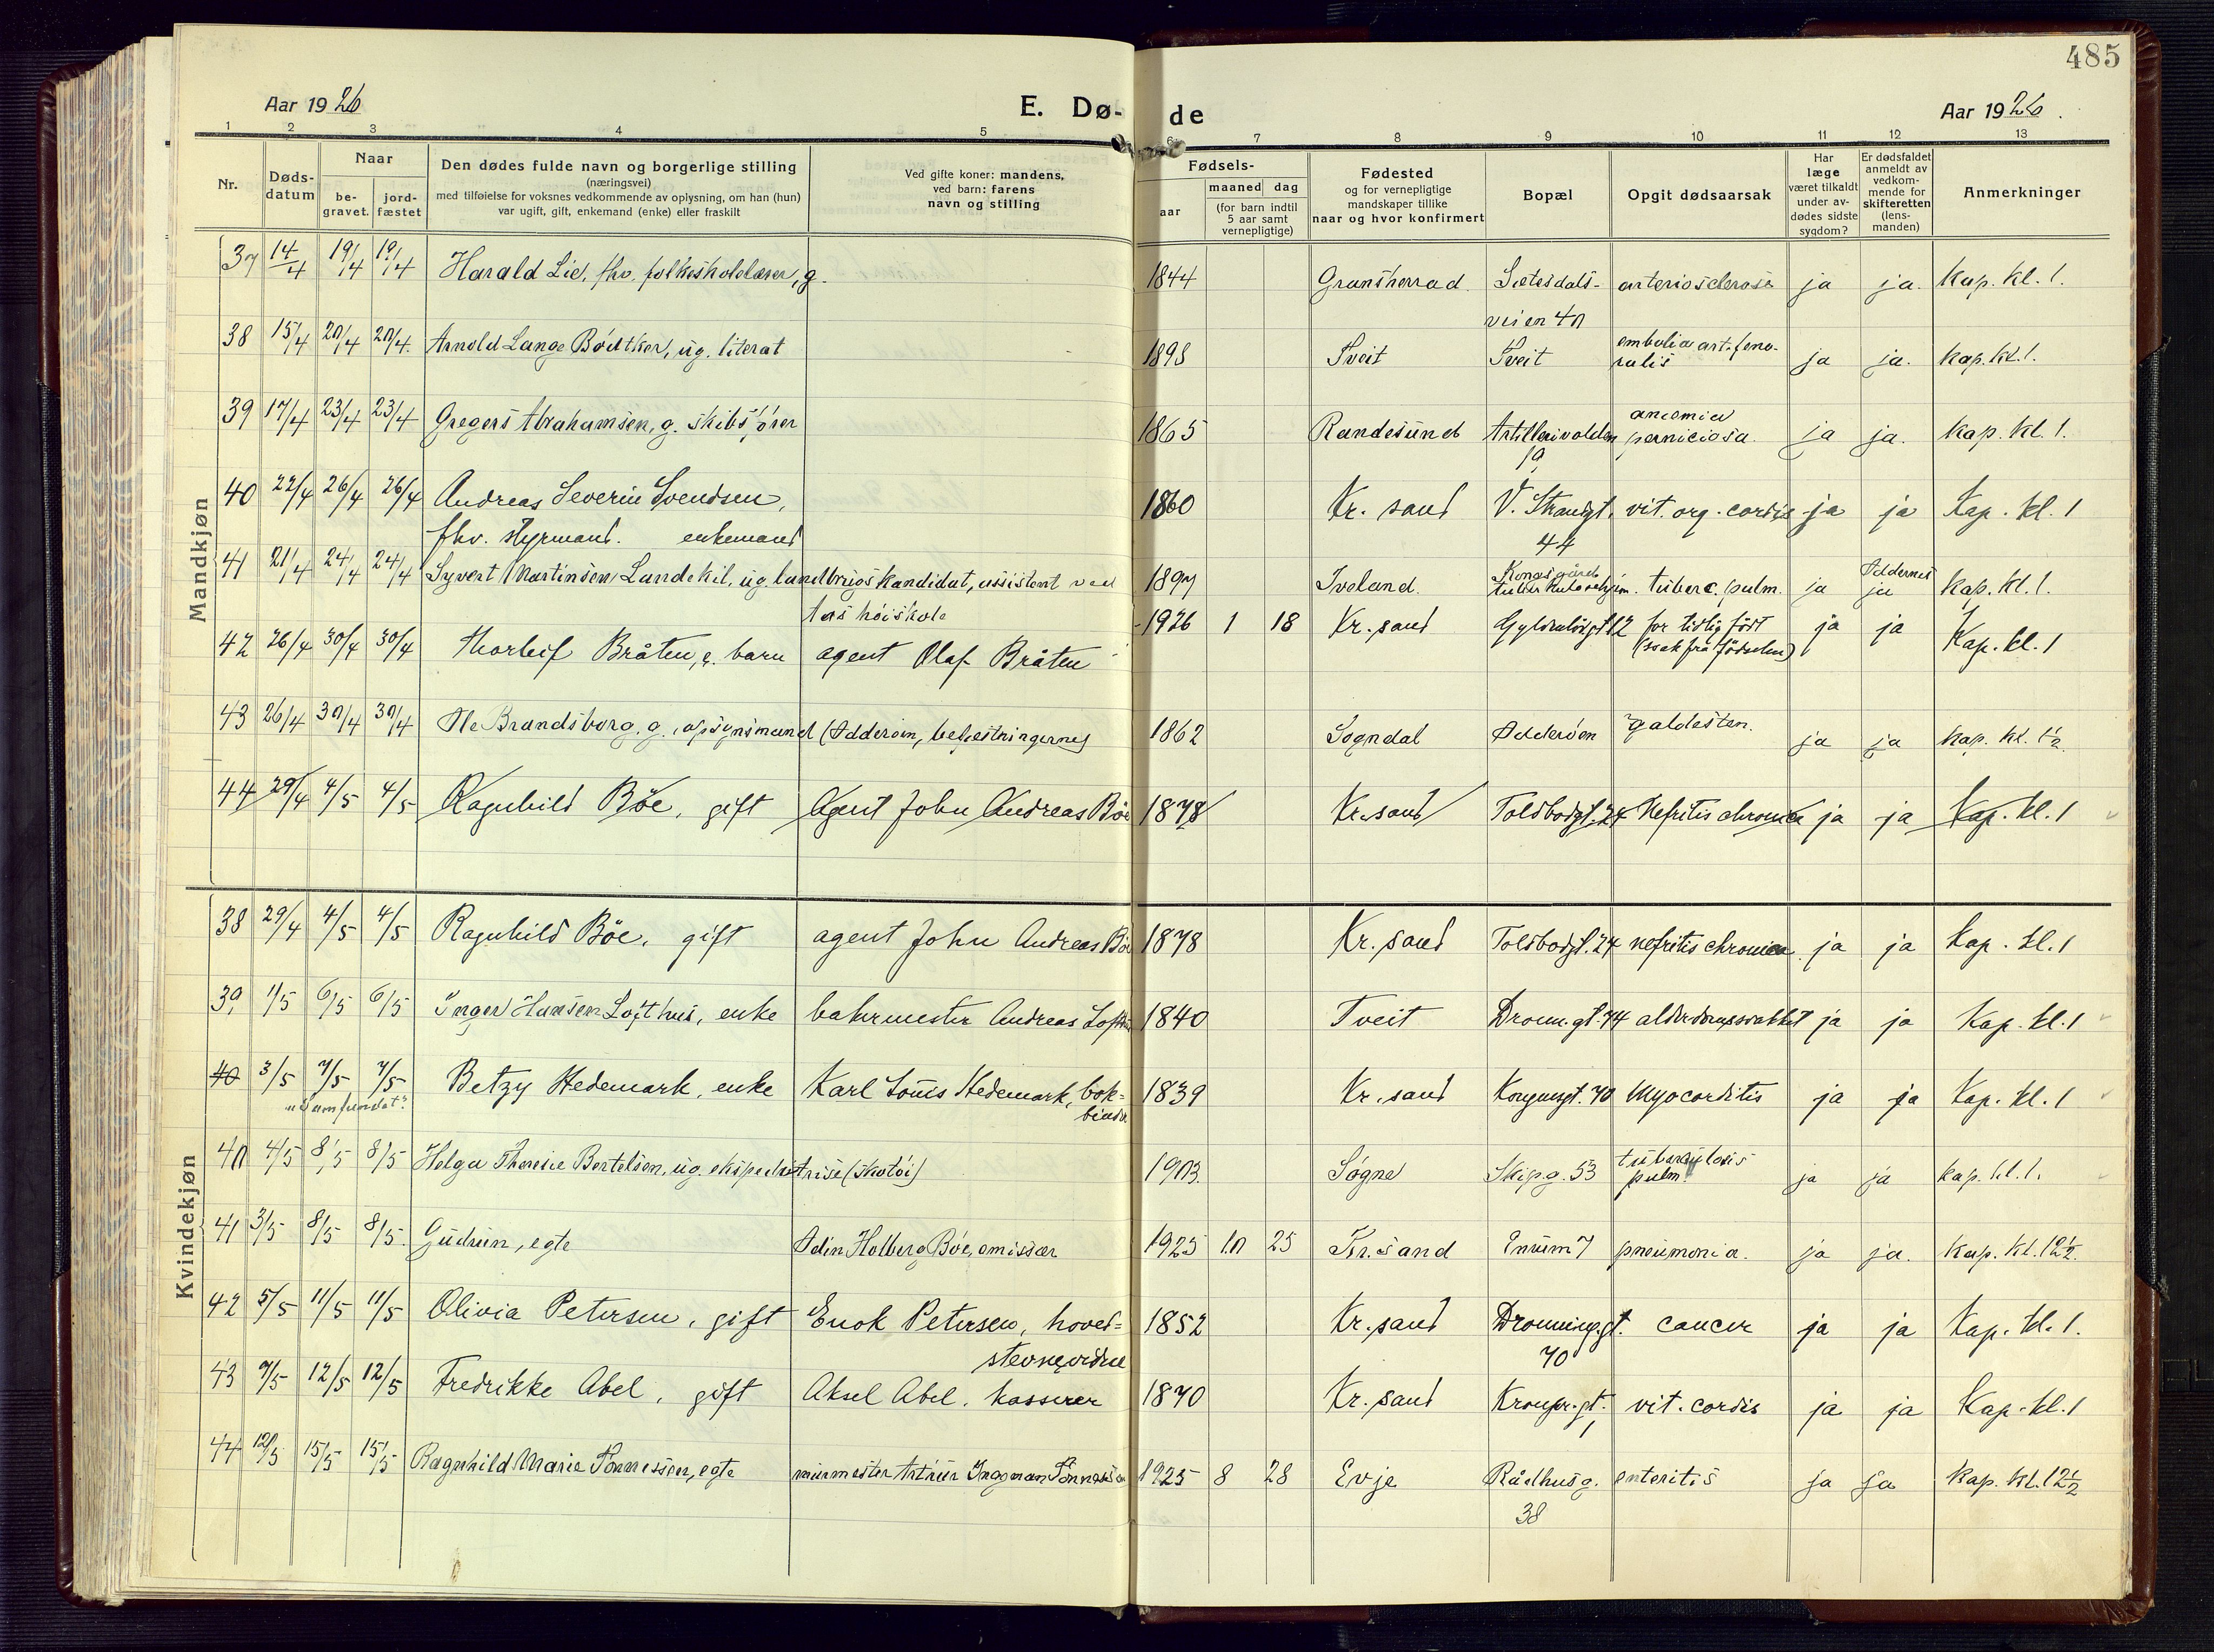 485
Aar 1926 E. Dø- de Aar 1926.
1 2 3 4 5 6 7 8 9 10 11 12 13
Nr. Døds-datum Naar be-gravet. jord-fæstet Den dødes fulde navn og borgerlige stilling (næringsvei) med tilføielse for voksnes vedkommende av oplysning, om han (hun) var ugift, gift, enkemand (enke) eller fraskilt Ved gifte koner: mandens, ved barn: farens navn og stilling Fødsels- aar maaned dag (for barn indtil 5 aar samt vernepligtige) Fødested og for vernepligtige mandskaper tillike naar og hvor konfirmert Bopæl Opgit dødsaarsak Har læge været tilkaldt under av-dødes sidste sygdom? Er dødsfaldet anmeldt av vedkom-mende for skifteretten (lens-manden) Anmerkninger
Mandkjøn
37 14/4 19/4 19/4 Harald Lie, fhv. folkeskolelærer, g. 1844 Gransherrad Sætesdals-veien 40 arteriosclerose ja ja. Kap. kl. 1.
38 15/4 20/4 20/4. Arnold Lange Bödtker, ug. literat 1898 Tveit Tveit embolia art. femo-ralis ja ja. kap. kl. 1.
39 17/4 23/4 23/4 Gregers Abrahamsen, g. skibsfører 1865 Randesund Artillerivolden 19 anæmia perniciosa. ja ja. kap. kl. 1.
40 22/4 26/4 26/4 Andreas Severin Svendsen, fhv. styrmand. enkemand 1860 Kr. sand V. Strandgt. 44 vit. org. cordis ja ja Kap. kl. 1
41 21/4 24/4 24/4 Syvert (Martinsen) Landekil, ug. landbrugskandidat, assistent ved høiskole 1897 Iveland. Kongsgård tuberc. pulm. ja Oddernes ja kap. kl. 1.
42 26/4 30/4 30/4 Thorleif Bråten, e. barn agent Olaf Bråten 1926 1 18 Kr. sand 12 for tidlig född (svak fra födselen) ja ja Kap. kl. 1
43 26/4 30/4 30/4 Ole Brandsborg, g., opsynsmand (Odderöen, befestningerne) 1862 Sogndal Odderöen galdesten. ja ja kap. kl. 1½.
44 29/4 4/5 4/5 Ragnhild Böe, gift Agent John Andreas Böe 1878 Kr. sand Toldbodgt. 24 Nefritis chronica ja ja Kap. kl. 1
Kvindekjøn
38 29/4 4/5 4/5 Ragnhild Böe, gift agent John Andreas Böe 1878 Kr. sand Toldbodgt. 24 nefritis chronica ja ja Kap. kl. 1
39 1/5 6/5 6/5 Inger Hansen Lofthus, enke bakermester Andreas Lofthus 1840 Tveit Dronn.gt. 74 alderdomssvakhet ja ja Kap. kl. 1
40 3/5 7/5 7/5 Betzy Hedemark, enke Karl Louis Hedemark, bok-binder 1839 Kr. sand Kongensgt. 70 Myocarditis ja ja Kap. kl. 1
"Samfundet".
40 4/5 8/5 8/5 Helga Therese Bertelsen, ug. ekspeditrise (skotöi) 1903. Søgne Skip.g. 53 tuberculosis pulm. ja ja kap. kl. 1.
41 3/5 8/5 8/5. Gudrun, egte Odin Holberg Böe, emissær 1925 10 25 Kr. sand Enrum 7 pneumonia. ja ja. Kap. kl. 12½.
42 5/5 11/5 11/5 Olivia Petersen, gift Enok Petersen, hoved-stevnevidne 1852 Kr. sand Dronning.gt. 70 cancer ja ja Kap. kl. 1.
43 7/5 12/5 12/5 Fredrikke Abel, gift Aksel Abel, kasserer 1870 Kr. sand Kronpr.gt. 1 vit. cordis ja ja Kap. kl. 1
44 12/5 15/5 15/5 Ragnhild Marie Tönnessen, egte murmester Arthur Ingeman Tönnessen 1925 8 28 Evje Rådhusg. 38 enteritis ja ja Kap. kl. 12½